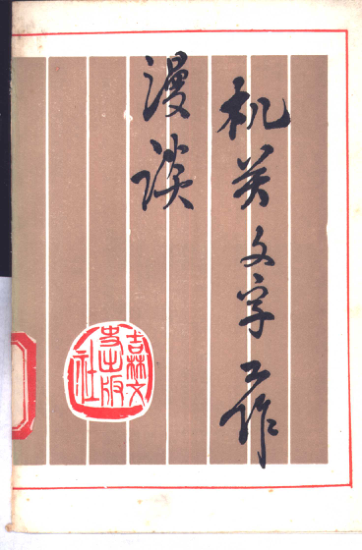 机关文字工作
漫谈
吉林文
史出版
社